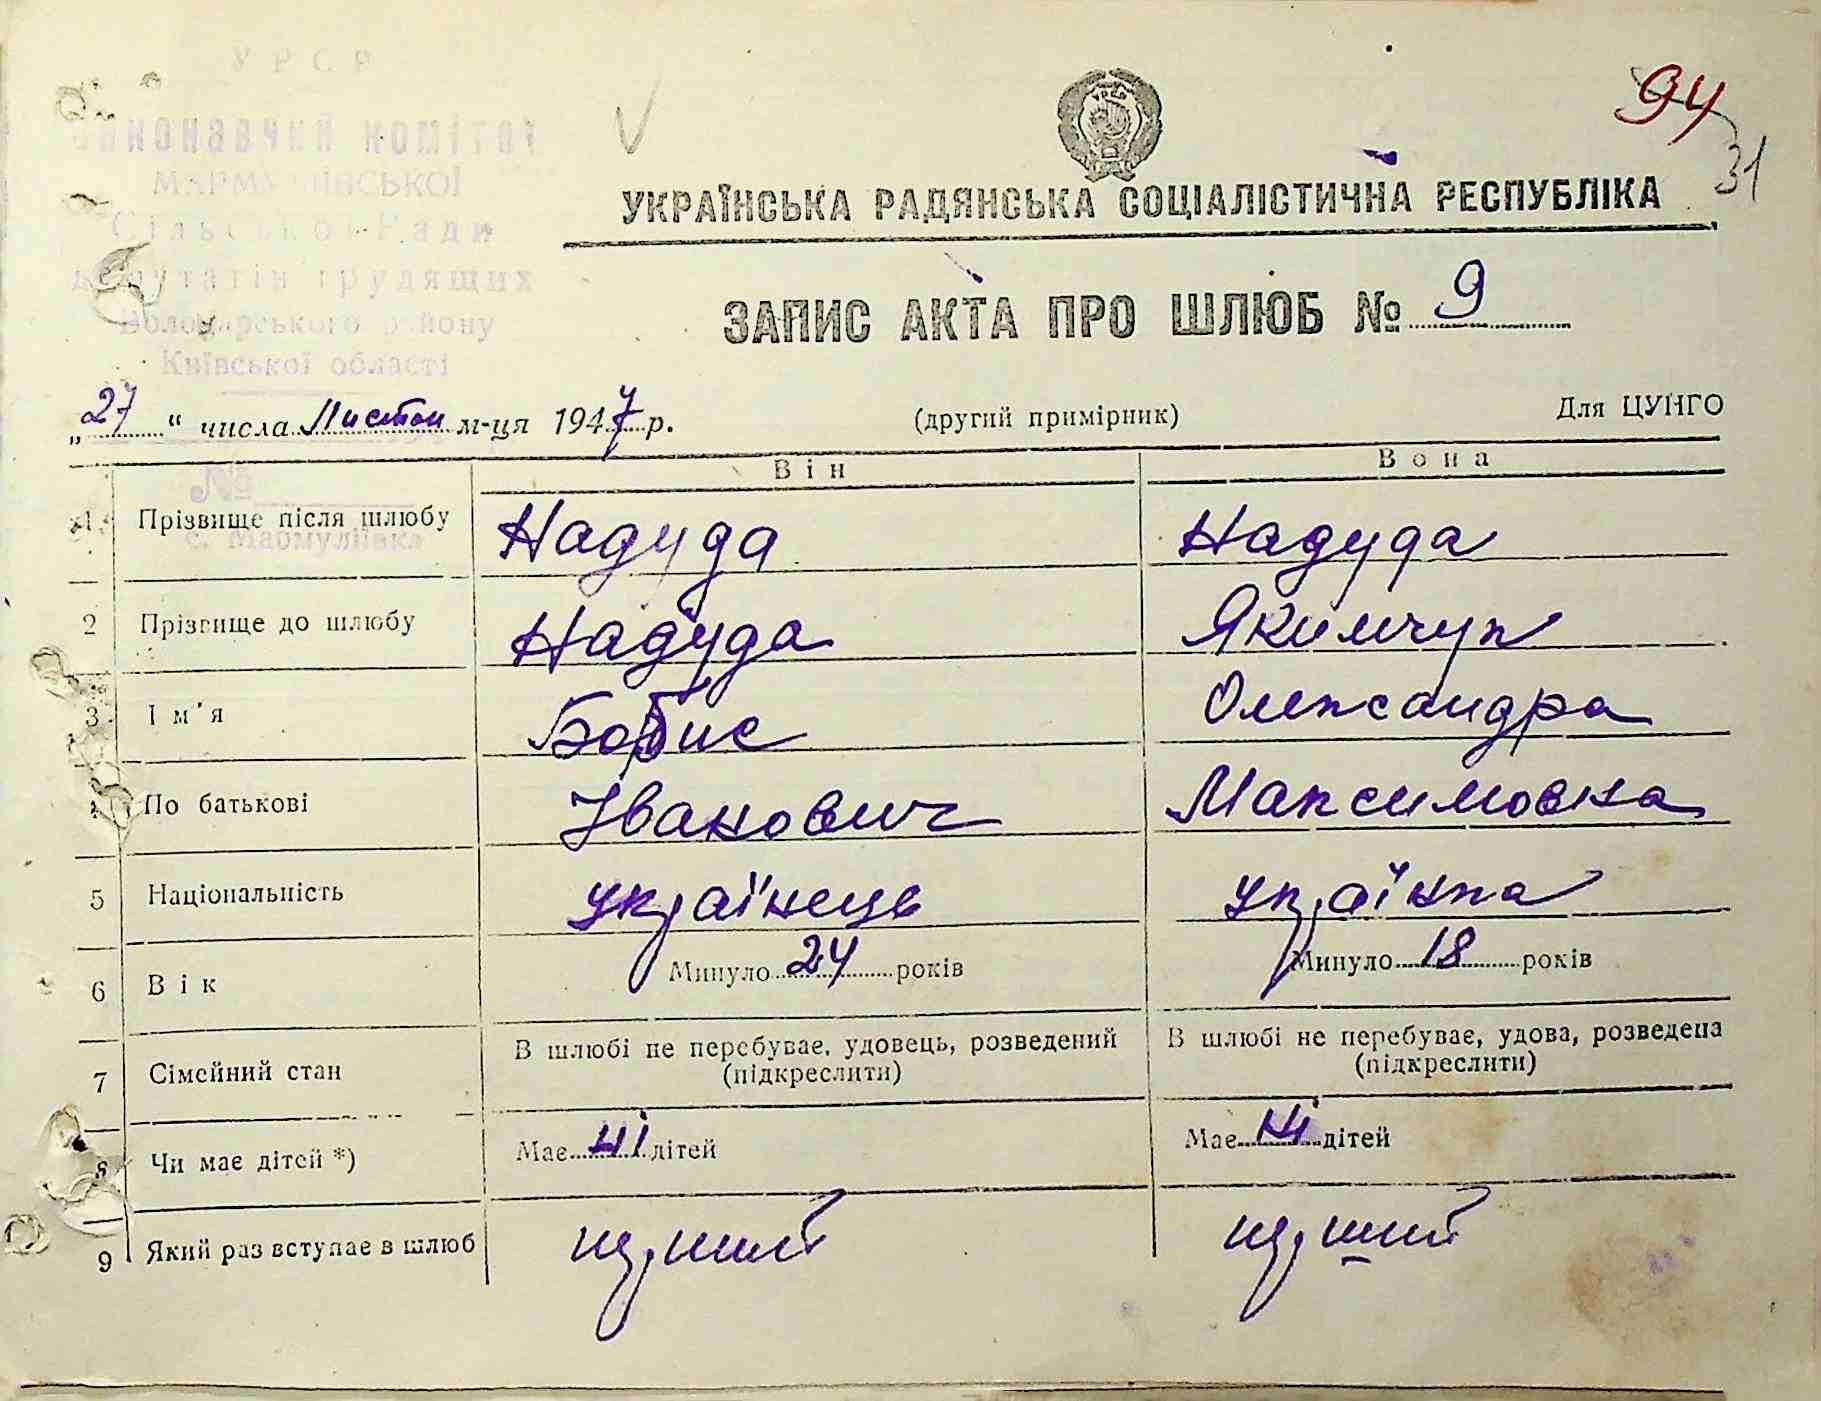 УРСР
Виконавчий комітет
МАРМУЛІЇВСЬКОЇ
Сільської Ради
депутатів трудящих
Володарського району
Київської області
94
31
УКРАЇНСЬКА РАДЯНСЬКА СОЦІАЛІСТИЧНА РЕСПУБЛІКА
ЗАПИС АКТА ПРО ШЛЮБ № 9
„27“ числа Листоп м-ця 1947 р. (другий примірник) Для ЦУНГО
№
с. Мармуліївка
Він Вона
1 Прізвище після шлюбу Надуда Надуда
2 Прізвище до шлюбу Надуда Якимчук
3 Ім'я Борис Олександра
4 По батькові Іванович Максимовна
5 Національність українець українка
6 Вік Минуло 24 років Минуло 18 років
7 Сімейний стан В шлюбі не перебуває, удовець, розведений (підкреслити) В шлюбі не перебуває, удова, розведена (підкреслити)
8 Чи має дітей *) Має ні дітей Має ні дітей
9 Який раз вступає в шлюб перший перший